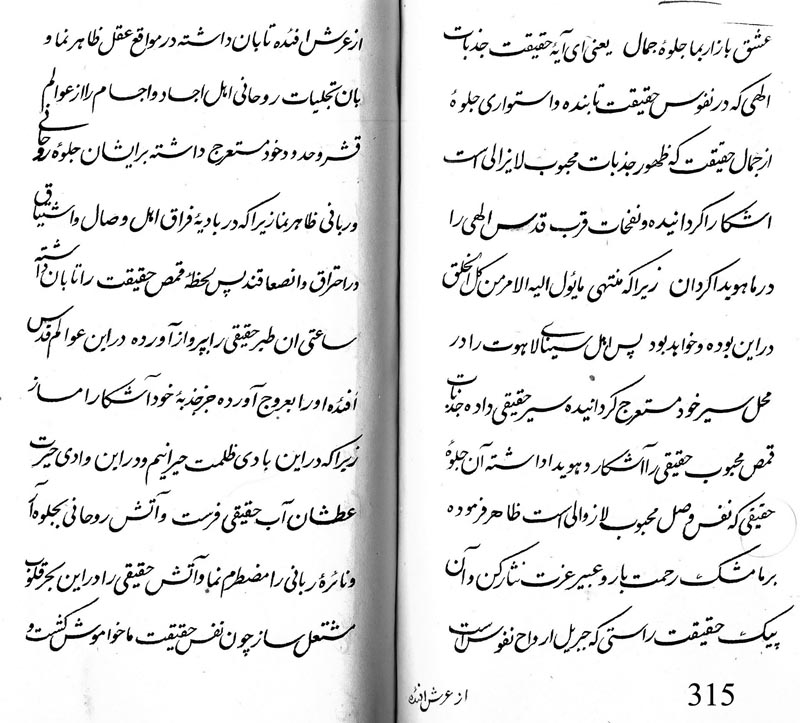 عشق بازار بما جلوهٔ جمال یعنی ای آیهٔ حقیقت جذبات
الهی که در نفوس حقیقت تابنده و استواری جلوهٔ
از جمال حقیقت که ظهور جذبات محبوب لایزالی است
اشکار را کردانیده و نفحات قرب قدس الهی را
در ما هویدا کردان زیرا که منتهی مایؤل الیه الامر من کل الخلق
در این بوده و خواهد بود پس اهل سینای لاهوت را در
محل سیر خود مستعرج کردانیده سیر حقیقی داده جذبات
قمص محبوب حقیقی را آشکار و هویدا داشته آن جلوهٔ
حقیقی که نفس وصل محبوب لازوالی است ظاهر فرموده
بر ما مشک رحمت بار و عبیر عزت نثار کن و آن
پیک حقیقت راستی که جبریل ارواح نفوس است
از عرش افئده
315
از عرش افئده تابان داشته در مواقع عقل ظاهر نما و
بان تجلیات روحانی اهل اجساد و اجسام را از عوالم
قشر و حدود خود مستعرج داشته بر ایشان جلوهٔ روحانی
و ربانی ظاهر نما زیرا که در بادیهٔ فراق اهل وصال و اشتیاق
در احتراق و انصعاقند پس لحظهٔ قمص حقیقت را تابان داشته
ساعتی ان طیر حقیقی را بپرواز آورده در این عوالم قدس
افئده او را بعروج آورده جز جذبهٔ خود آشکار را مساز
زیرا که در این بادی ظلمت حیرانیم و در این وادی حیرت
عطشان آب حقیقی فرست و آتش روحانی بجلوه آر
و نائرهٔ ربانی را مضطرم نما و آتش حقیقی را در این بحر قلوب
مشتعل ساز چون نفس حقیقت ما خواموش کشت و